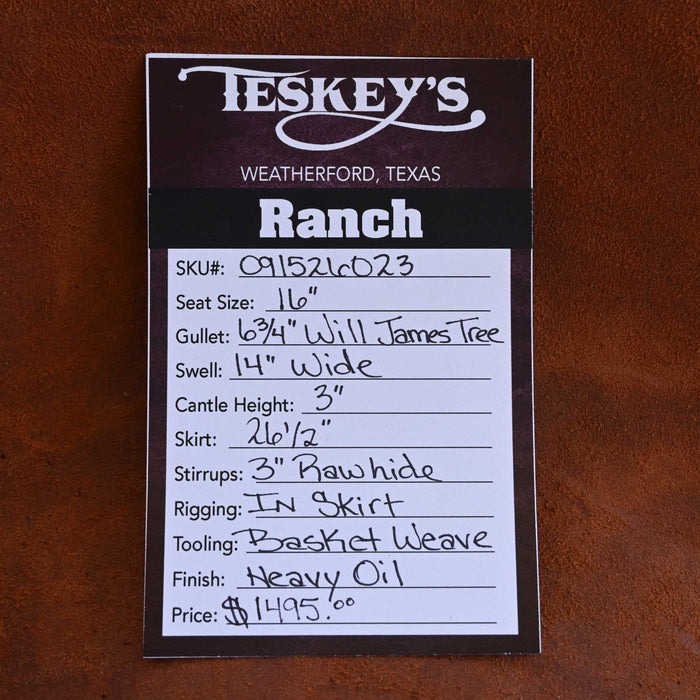 TESKEY'S
WEATHERFORD, TEXAS
Ranch
SKU#: 091526023
Seat Size: 16"
Gullet: 6 3/4" Will James Tree
Swell: 14" Wide
Cantle Height: 3"
Skirt: 26 1/2"
Stirrups: 3" Rawhide
Rigging: In Skirt
Tooling: Basket Weave
Finish: Heavy Oil
Price: $1495.00